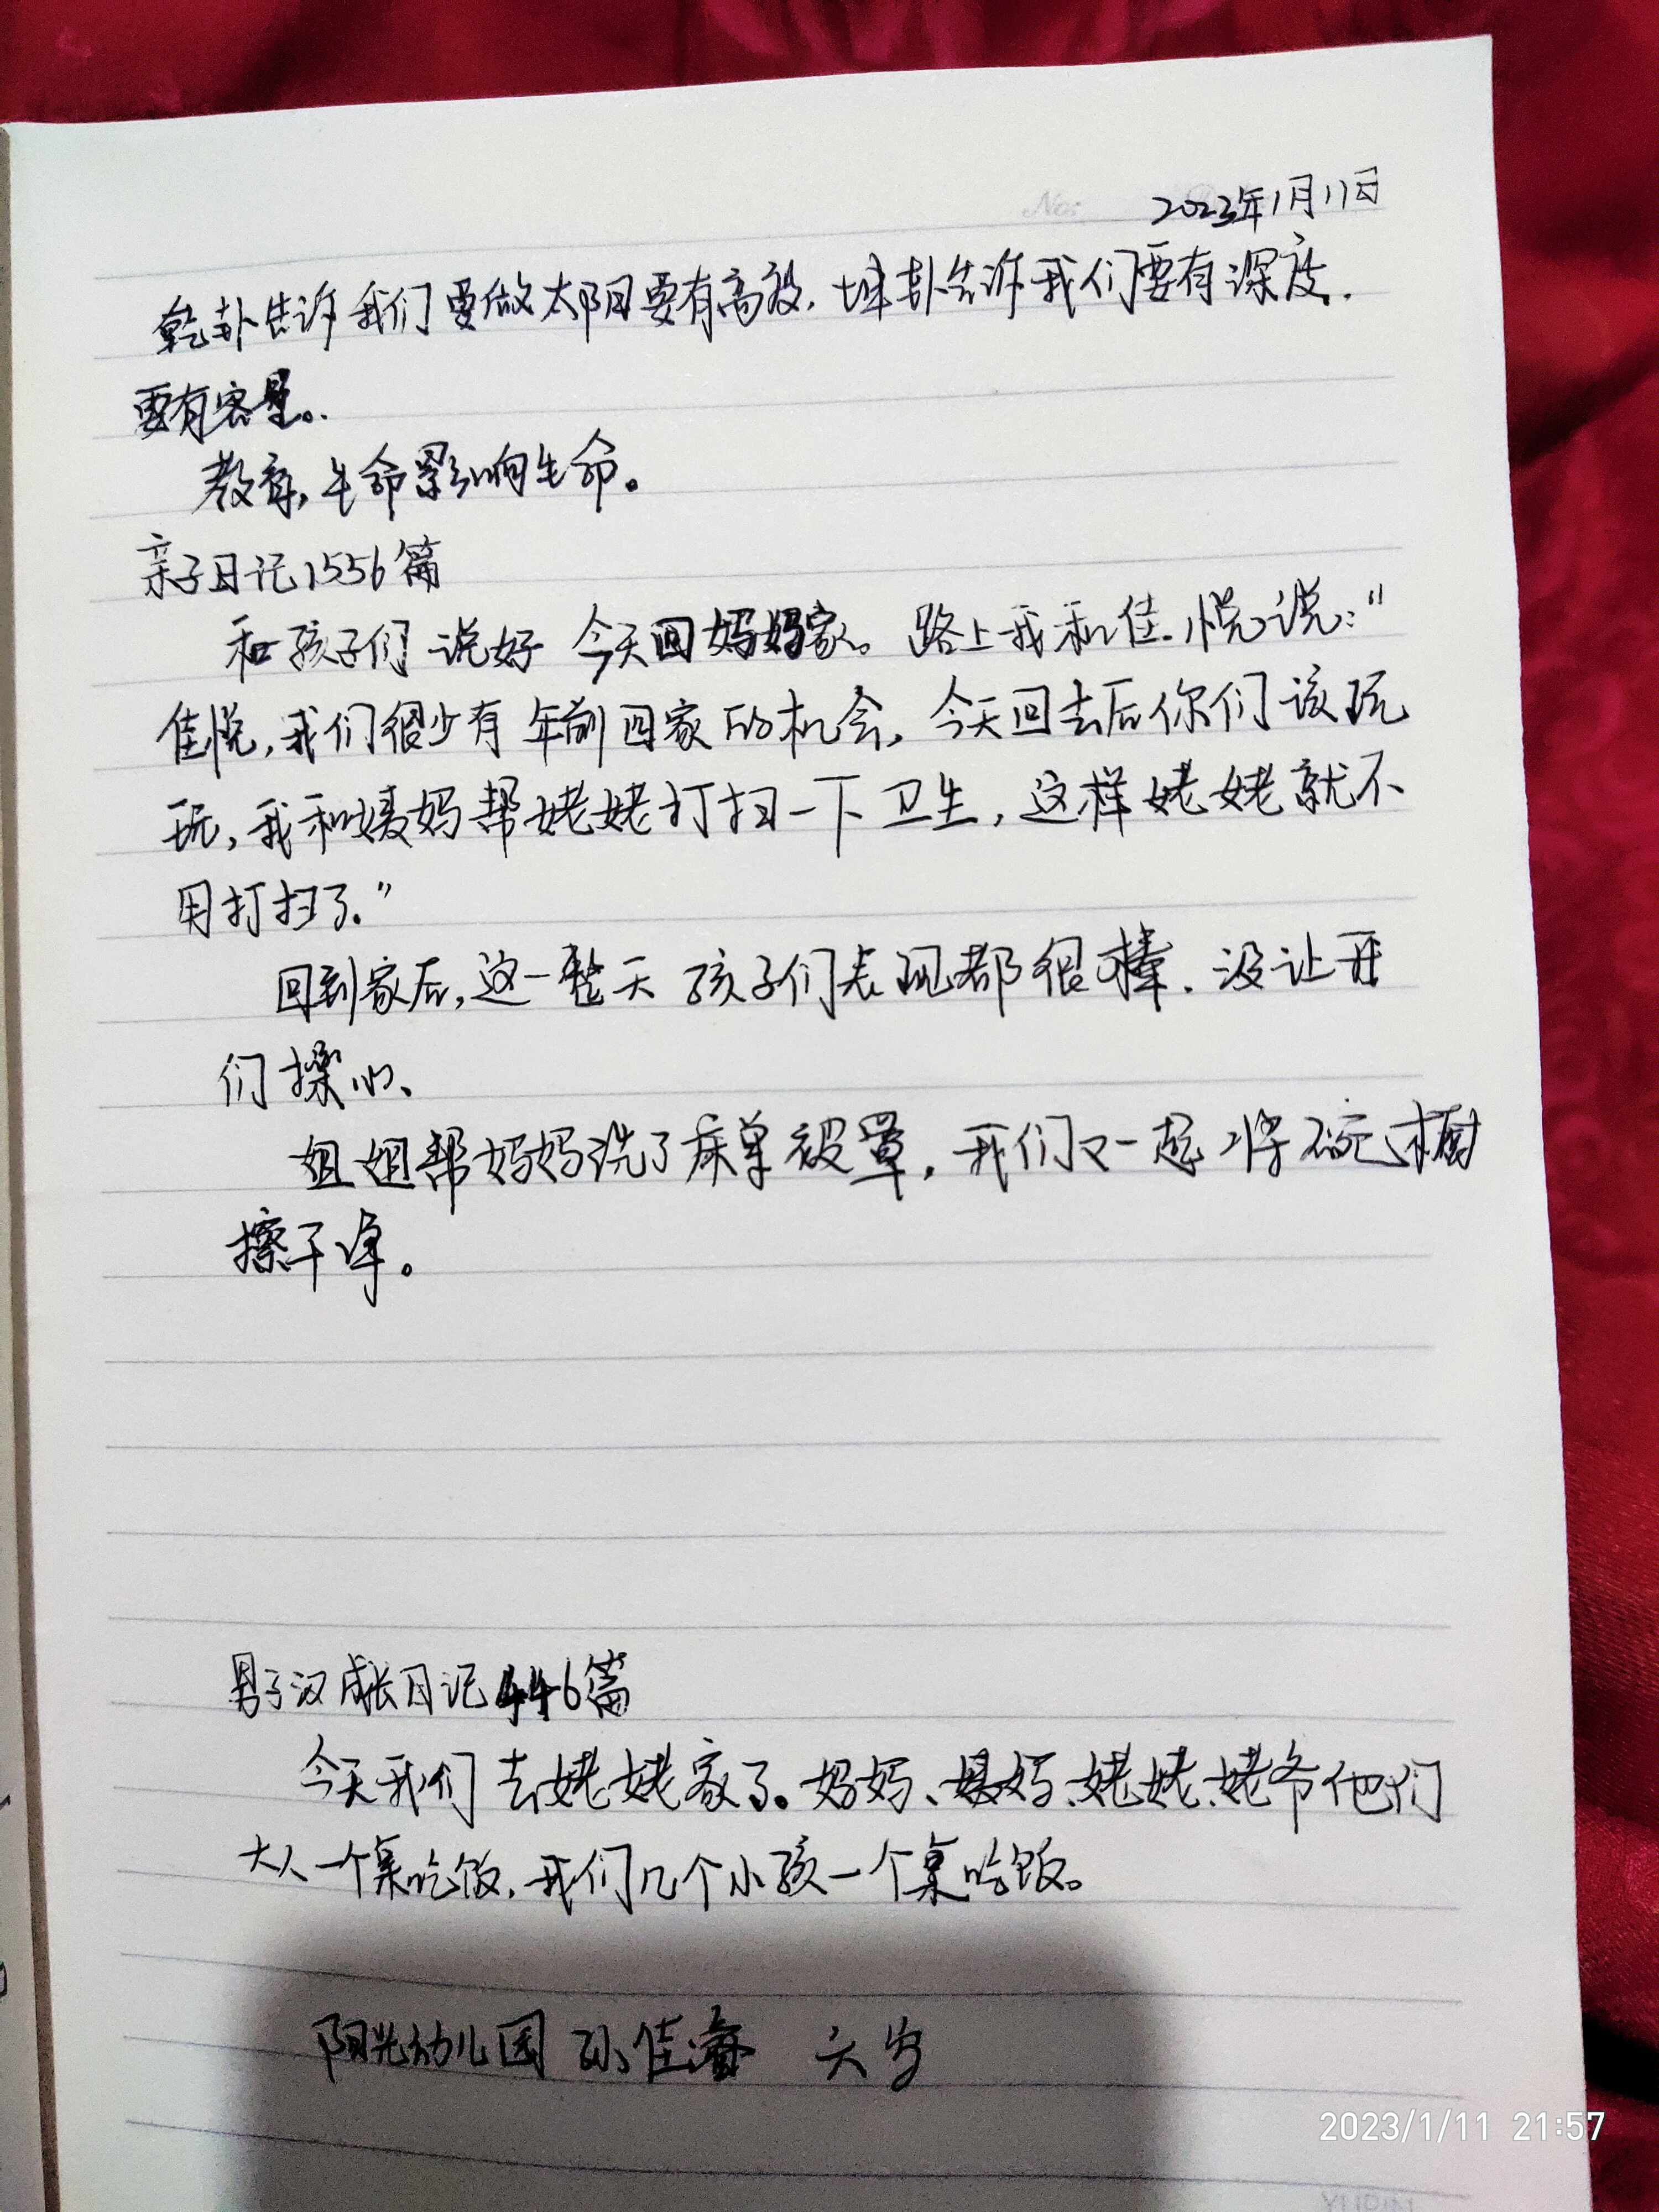 2023年1月11日
乾卦告诉我们要做太阳要有高度.坤卦告诉我们要有深度.
要有容量。
教育,生命影响生命。
亲子日记1556篇
和孩子们说好今天回妈妈家。路上我和佳悦说:"
佳悦,我们很少有年前回家的机会,今天回去后你们该玩
玩,我和嫚妈帮姥姥打扫一下卫生,这样姥姥就不
用打扫了."
回到家后,这一整天孩子们表现都很棒.没让我
们操心、
姐姐帮妈妈洗了床单被罩,我们又一起将碗橱
擦干净。
男子汉成长日记446篇
今天我们去姥姥家了。妈妈、嫚妈、姥姥、姥爷他们
大人一个桌吃饭.我们几个小孩一个桌吃饭。
阳光幼儿园 孙佳 六岁
2023/1/11 21:57